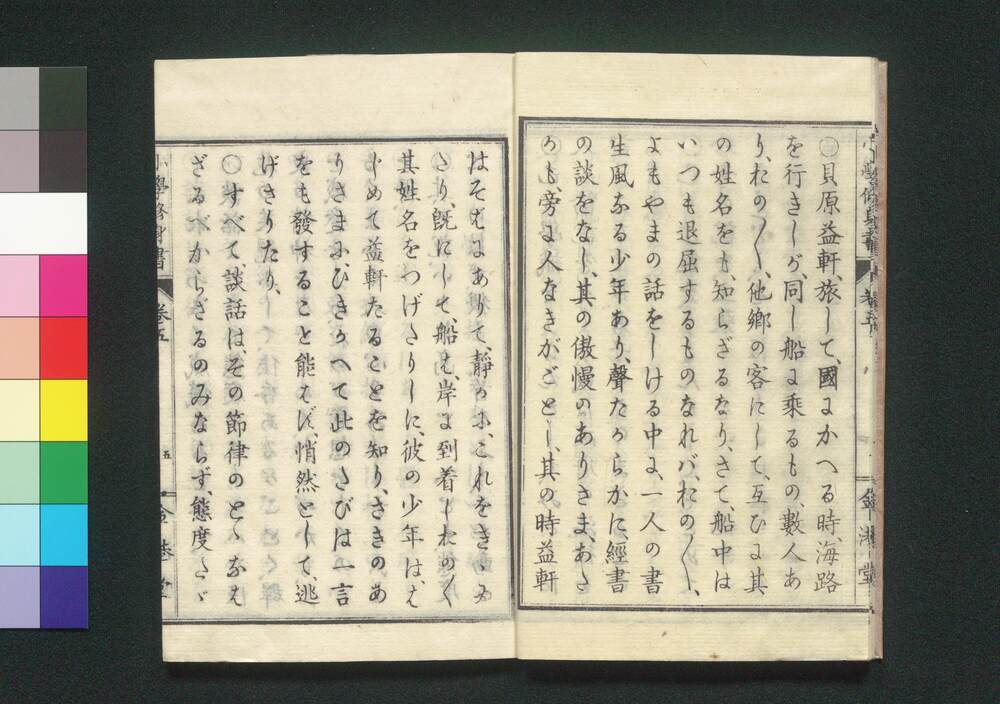 ○貝原益軒、旅して、國にかへる時、海路
を行きしが、同し船に乘るもの、數人あ
り、おの〳〵、他鄉の客にして、互ひに其
の姓名をも、知らざるなり、さて、船中は
いつも退屈するものなれバ、おの〳〵、
よもやまの話をしける中に、一人の書
生風なる少年あり、聲たからかに、經書
の談をなし、其の傲慢のありさま、あた
かも、旁に人なきがごとし、其の時益軒
はそばにありて、靜かに、これをきゝ居
たり、既にして、船は、岸に到着しおの〳〵
其姓名をつげさりしに、彼の少年は、は
じめて益軒たることを知り、さきのあ
りさまに、ひきかへて此のたびは一言
をも發すること能はず、悄然として、逃
げさりたり、
○すべて、談話は、その節律のとゝなは
ざるべからざるのみならず、態度たゞ
小學修身書
卷五
五
金港堂